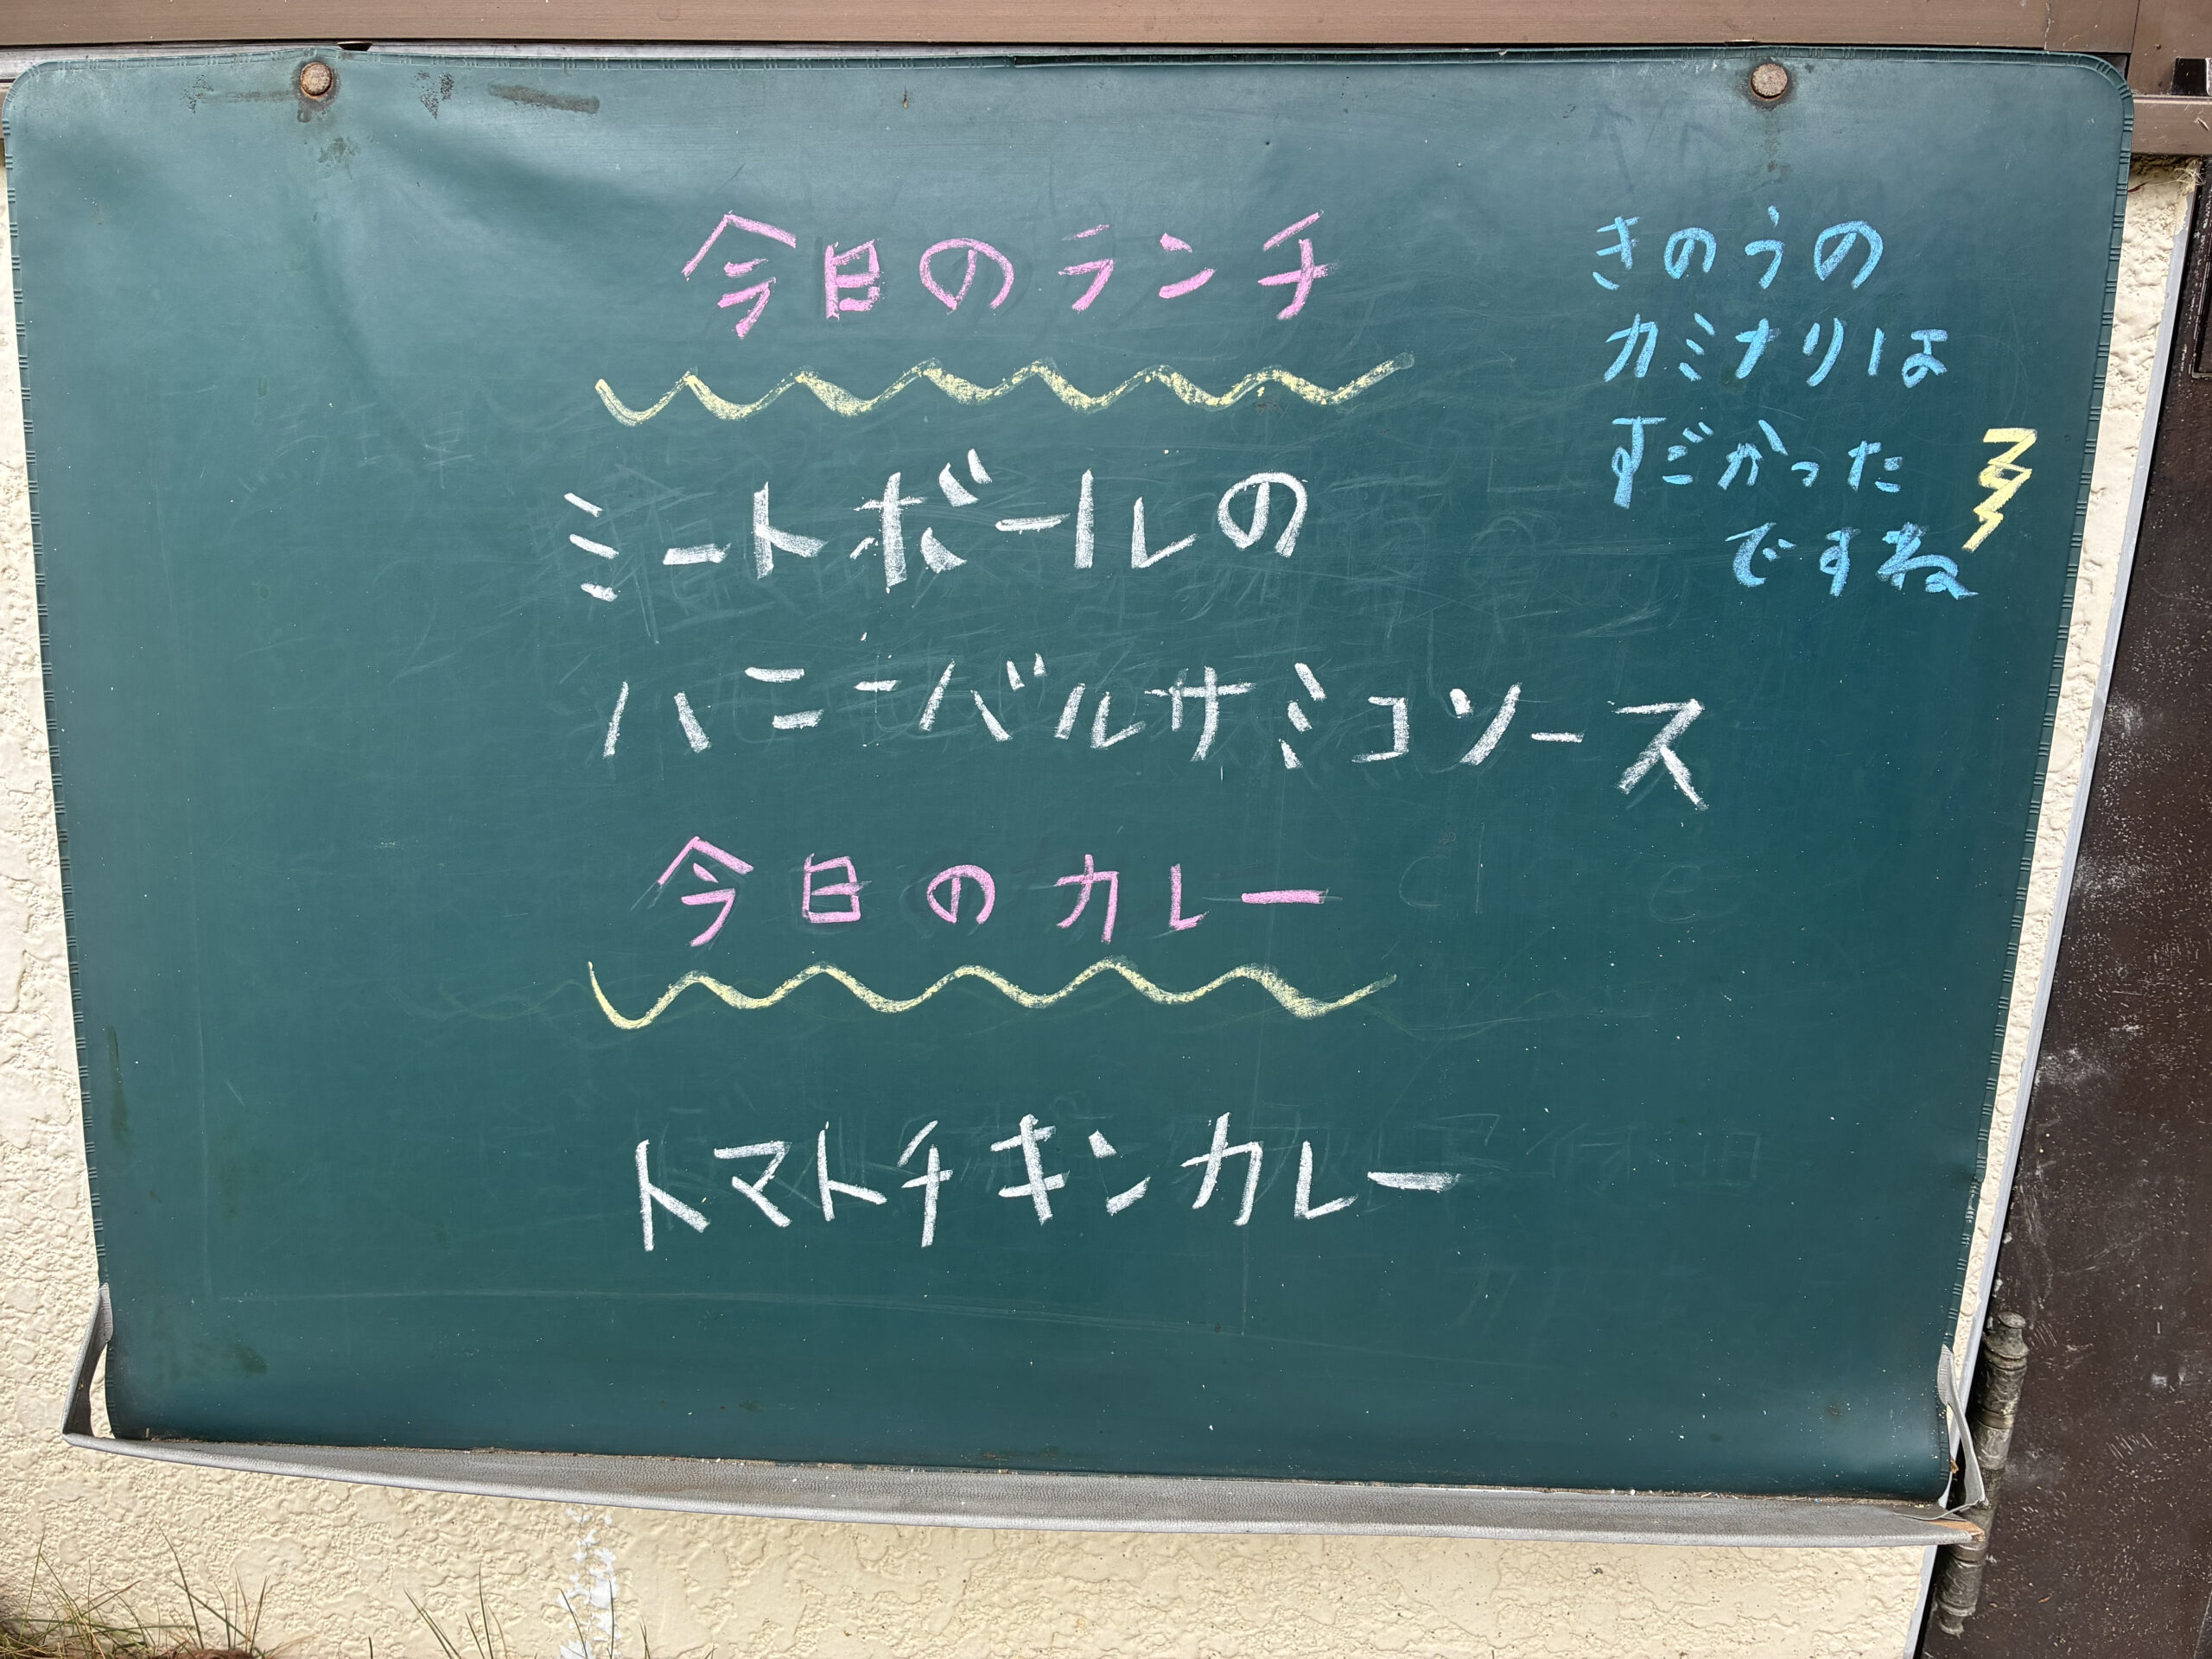 今日のランチ
ミートボールの
ハニーバルサミコソース
今日のカレー
トマトチキンカレー
きのうの
カミナリは
すごかった
ですね